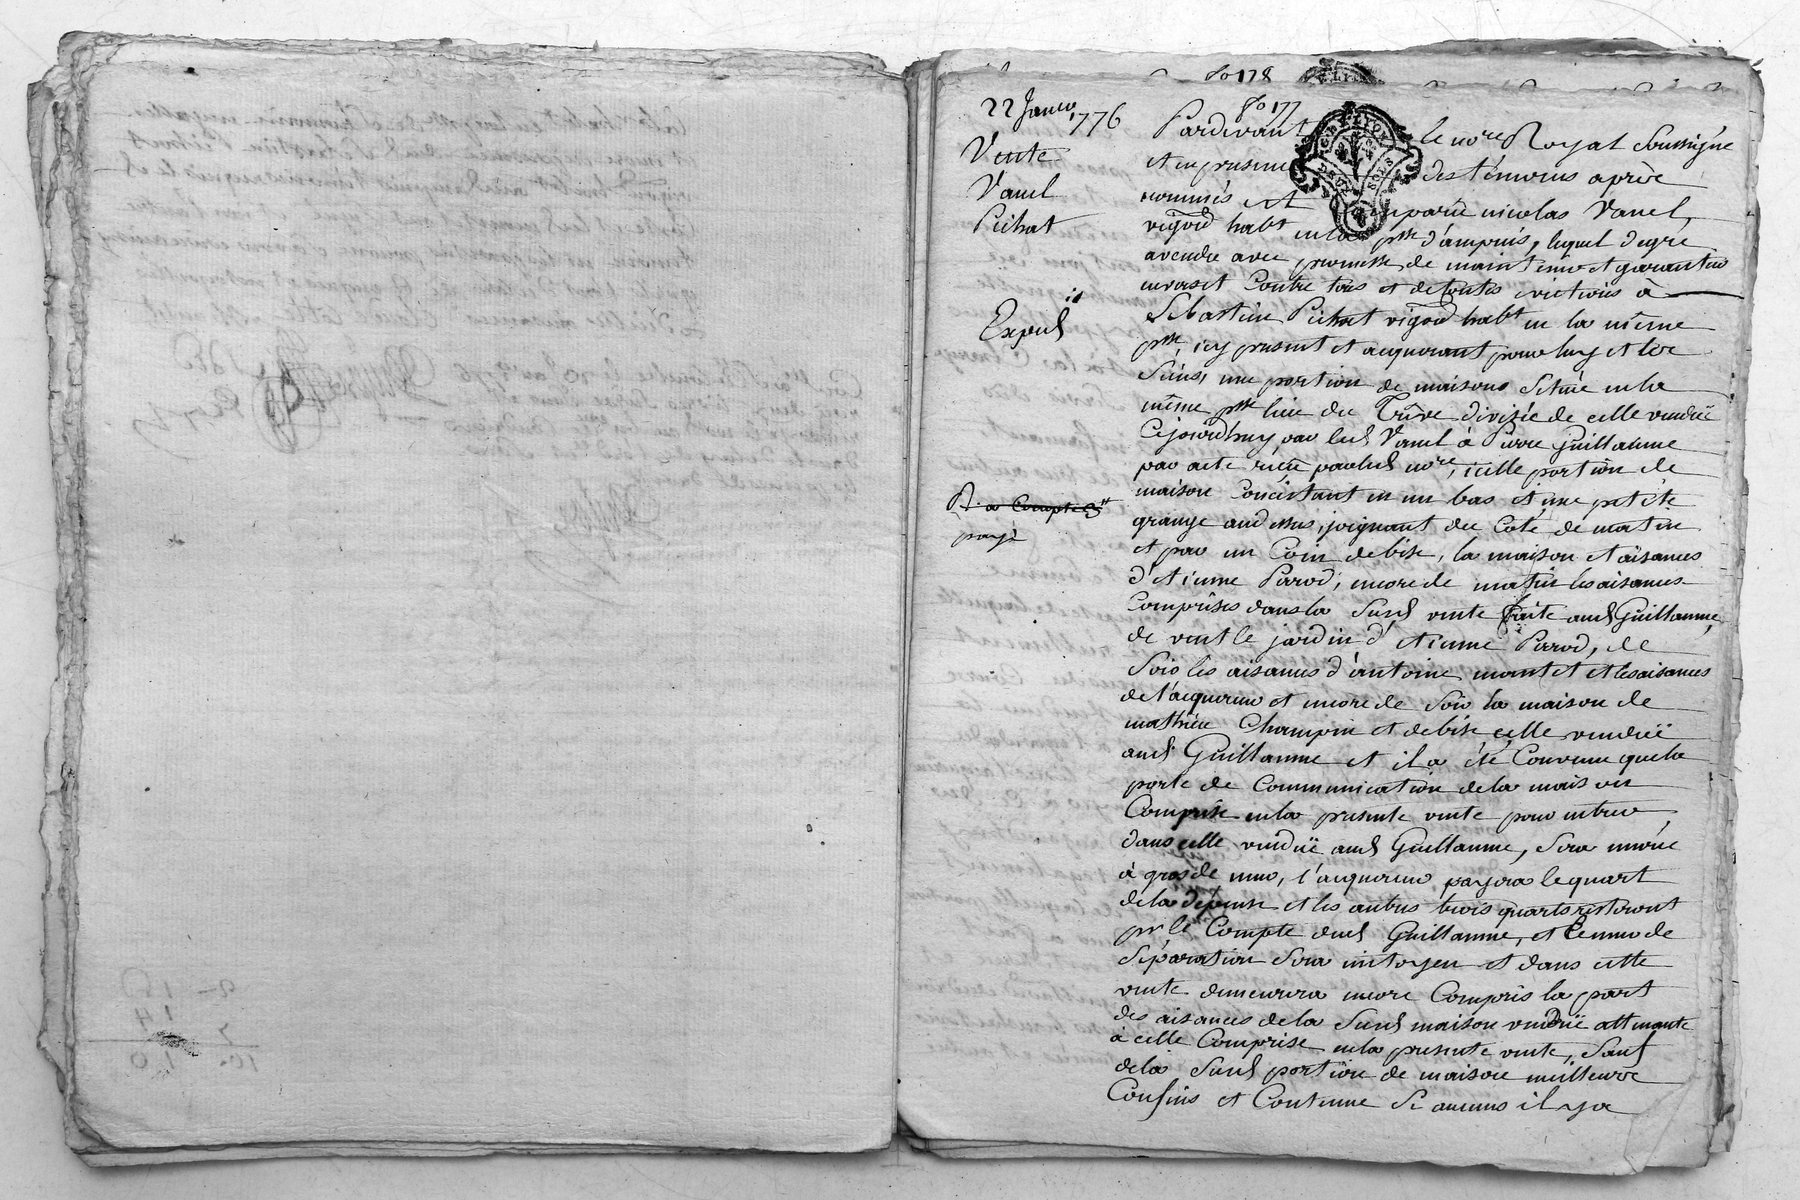 fo 178
22 Janvr 1776
fo 177
Vente
Vanel
Pichat
Expedi
R. a Compte 3tt
payé
Pardevant le nore Royal Soussigné
et en presence des témoins après
nommés est comparu nicolas Vanel
vigon habt en la psse d'ampuis, lequel degré
a vendu avec promesse de maintenir et garantir
envers et Contre tous et de toutes evictions à
Sebastien Pichat vigon habt en la même
psse, icy present et acquerant pour luy et les
Siens, une portion de maisons Située en la
même psse lieu du Trève divisée de celle vendüe
Cejourdhuy par led Vanel à Pierre Guillaume
par acte reçu par led nore, icelle portion de
maison Concistant en un bas et une petite
grange au dessus, joignant du Coté de matin
et par un Coin de bise, la maison et aisances
d'Etienne Perrod, encore de matin les aisances
Comprises dans la Susd vente faite aud Guillaume,
de vent le jardin d'Etienne Perrod, de
Soir les aisances d'antoine montet et les aisances
de l'acquereur et encore de Soir la maison de
mathieu Champin et de bise celle vendüe
aud Guillaume et il a été Convenu que la
porte de Communication de la maison
Comprise en la presente vente pour entrer
dans celle vendüe aud Guillaume, Sera murée
à gros de mur, l'acquereur payera le quart
de la depense et les autres trois quarts resteront
pr le Compte dud Guillaume, et le mur de
Séparation Sera mitoyen et dans cette
vente demeurera encore Compris la part
des aisances de la Susd maison vendüe attenante
à celle Comprise en la presente vente, Sauf
de la Susd portion de maison meilleure
Confins et Contenue Si aucuns il y a